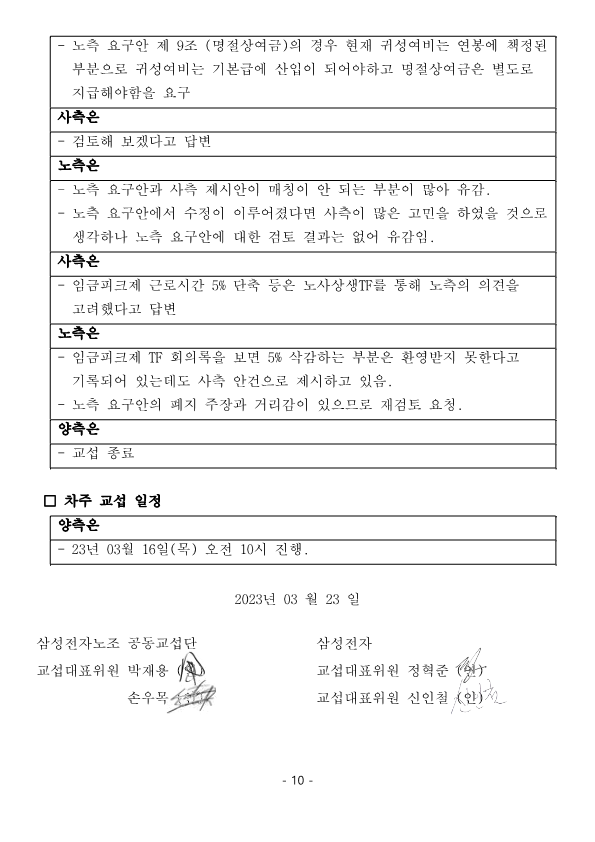 - 노측 요구안 제 9조 (명절상여금)의 경우 현재 귀성여비는 연봉에 책정된
부분으로 귀성여비는 기본급에 산입이 되어야하고 명절상여금은 별도로
지급해야함을 요구
사측은
- 검토해 보겠다고 답변
노측은
- 노측 요구안과 사측 제시안이 매칭이 안 되는 부분이 많아 유감.
- 노측 요구안에서 수정이 이루어졌다면 사측이 많은 고민을 하였을 것으로
생각하나 노측 요구안에 대한 검토 결과는 없어 유감임.
사측은
- 임금피크제 근로시간 5% 단축 등은 노사상생TF를 통해 노측의 의견을
고려했다고 답변
노측은
- 임금피크제 TF 회의록을 보면 5% 삭감하는 부분은 환영받지 못한다고
기록되어 있는데도 사측 안건으로 제시하고 있음.
- 노측 요구안의 폐지 주장과 거리감이 있으므로 재검토 요청.
양측은
- 교섭 종료
□ 차주 교섭 일정
양측은
- 23년 03월 16일(목) 오전 10시 진행.
2023년 03 월 23 일
삼성전자노조 공동교섭단
교섭대표위원 박재용
손우목
삼성전자
교섭대표위원 정혁준 (인)
교섭대표위원 신인철 (인)
- 10 -